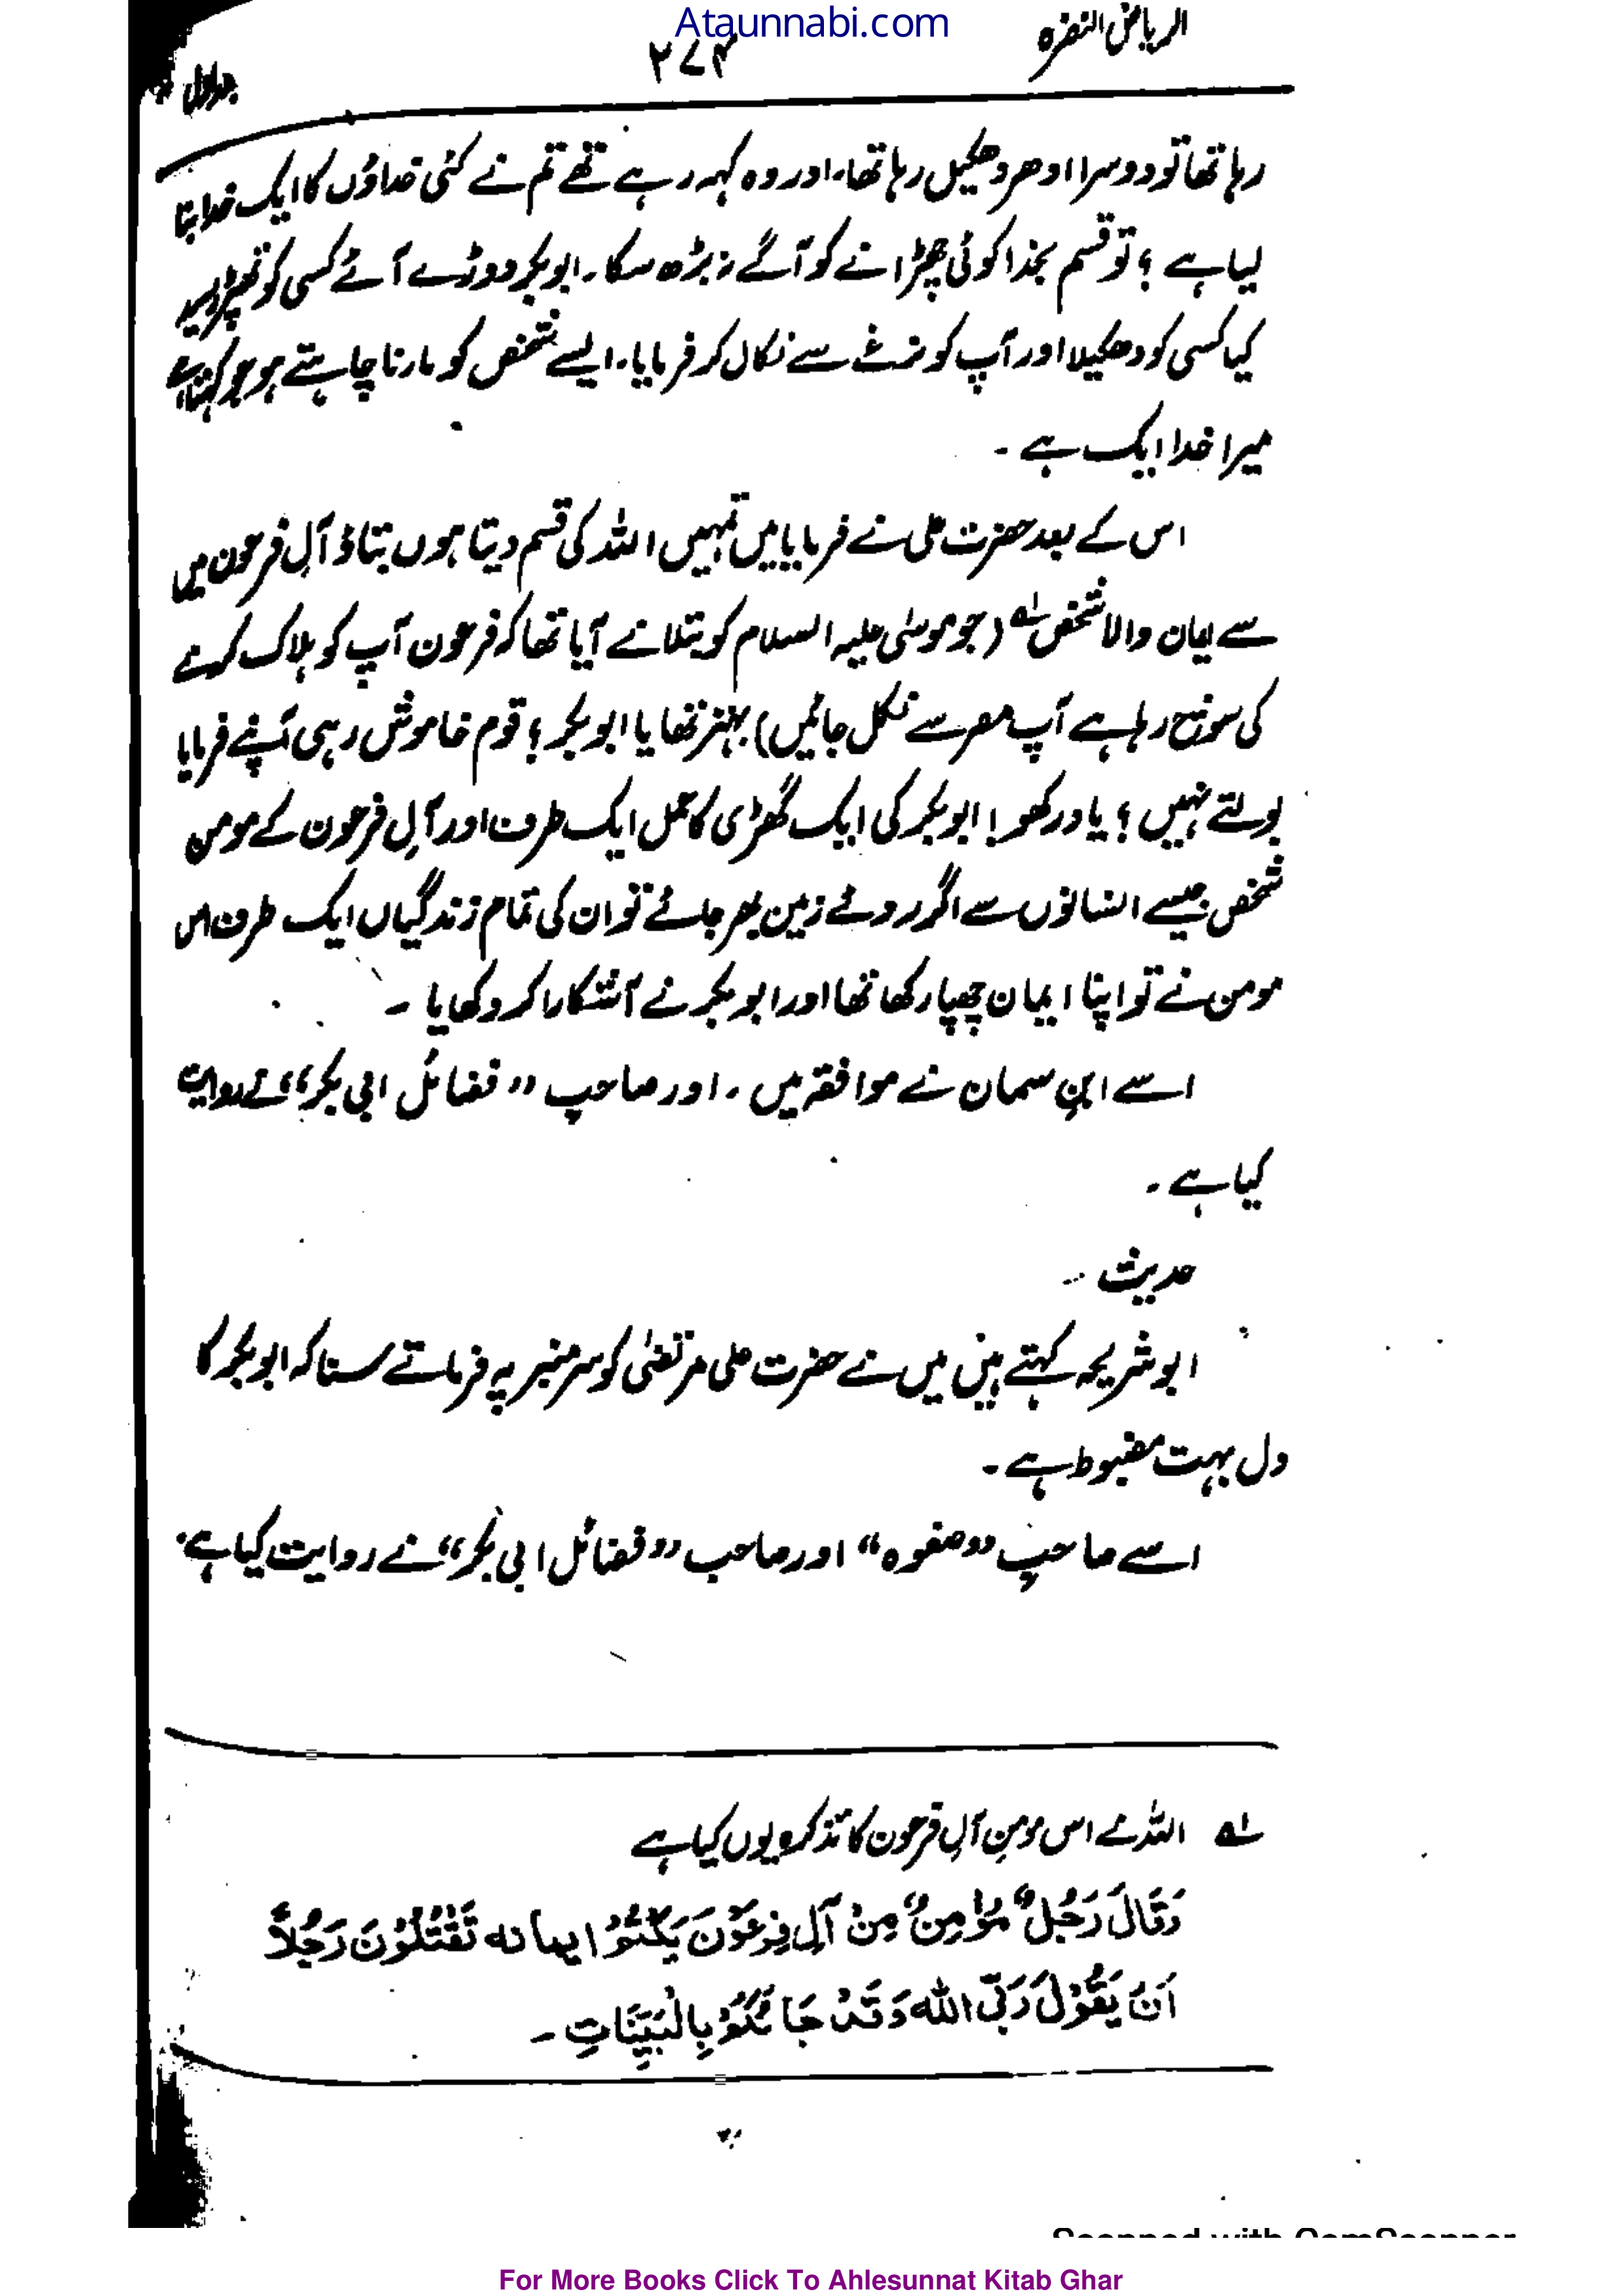 Ataunnabi.com
الریاض النضرہ
۲۷۴
جلد اول
رہا تھا تو دوسرا ادھر دھکیل رہا تھا، اور وہ کہہ رہے تھے تم نے کئی خداؤں کا ایک خدا بنا
لیا ہے ؟ تو قسم بخدا کوئی چھڑانے کو آگے نہ بڑھ سکا۔ ابوبکر دوڑے آئے کسی کو تھپڑ رسید
کیا کسی کو دھکیلا اور آپ کو نرغے سے نکال کر فرمایا، ایسے شخص کو مارنا چاہتے ہو جو کہتا ہے
میرا خدا ایک ہے ۔
اس کے بعد حضرت علی نے فرمایا میں تمہیں اللہ کی قسم دیتا ہوں بتاؤ آلِ فرعون میں
سے ایمان والا شخص لہ (جو موسیٰ علیہ السلام کو بتلانے آیا تھا کہ فرعون آپ کو ہلاک کرنے
کی سوچ رہا ہے آپ مصر سے نکل جائیں) بہتر تھا یا ابوبکر ؟ قوم خاموش رہی آپ نے فرمایا
بولتے نہیں ؟ یاد رکھو ! ابوبکر کی ایک گھڑی کا عمل ایک طرف اور آلِ فرعون کے مومن
شخص جیسے انسانوں سے اگر روئے زمین بھر جائے تو ان کی تمام زندگیاں ایک طرف اس
مومن نے تو اپنا ایمان چھپا رکھا تھا اور ابوبکر نے آشکارا کر دکھایا ۔
اسے ابنِ سمان نے موافقہ میں ، اور صاحبِ ”فضائل ابی بکر“ نے روایت
کیا ہے ۔
حدیث ۔
ابو شریحہ کہتے ہیں میں نے حضرت علی مرتضیٰ کو سرِ منبر پہ فرماتے سنا کہ ابوبکر کا
دل بہت مضبوط ہے ۔
اسے صاحبِ ”صفوہ“ اور صاحب ”فضائل ابی بکر“ نے روایت کیا ہے ۔
لہ اللہ نے اس مومنِ آلِ فرعون کا تذکرہ یوں کیا ہے
وَقَالَ رَجُلٌ مُؤْمِنٌ مِنْ آلِ فِرْعَوْنَ يَكْتُمُ ايمانه تَقْتُلُوْنَ رَجُلاً
اَنْ يَقُوْلَ رَبِّىَ اللهُ وَقَدْ جَائَكُمْ بِالْبَيِّنَاتِ ۔
For More Books Click To Ahlesunnat Kitab Ghar